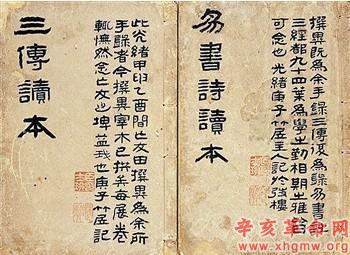 撰異既為余手錄三傳復為錄易書詩
三經都九十四葉為學之勤相期之雅皆
可念也光緒庚子竹居主人記於弢樓
易書詩讀本
此光緒甲申乙酉間亡友田撰異為余所
手錄者今撰異宰木已拱矣每展卷
輒憮然念亡友之埤益我也庚子竹居記
三傳讀本
辛亥革命网
www.xhgmw.org